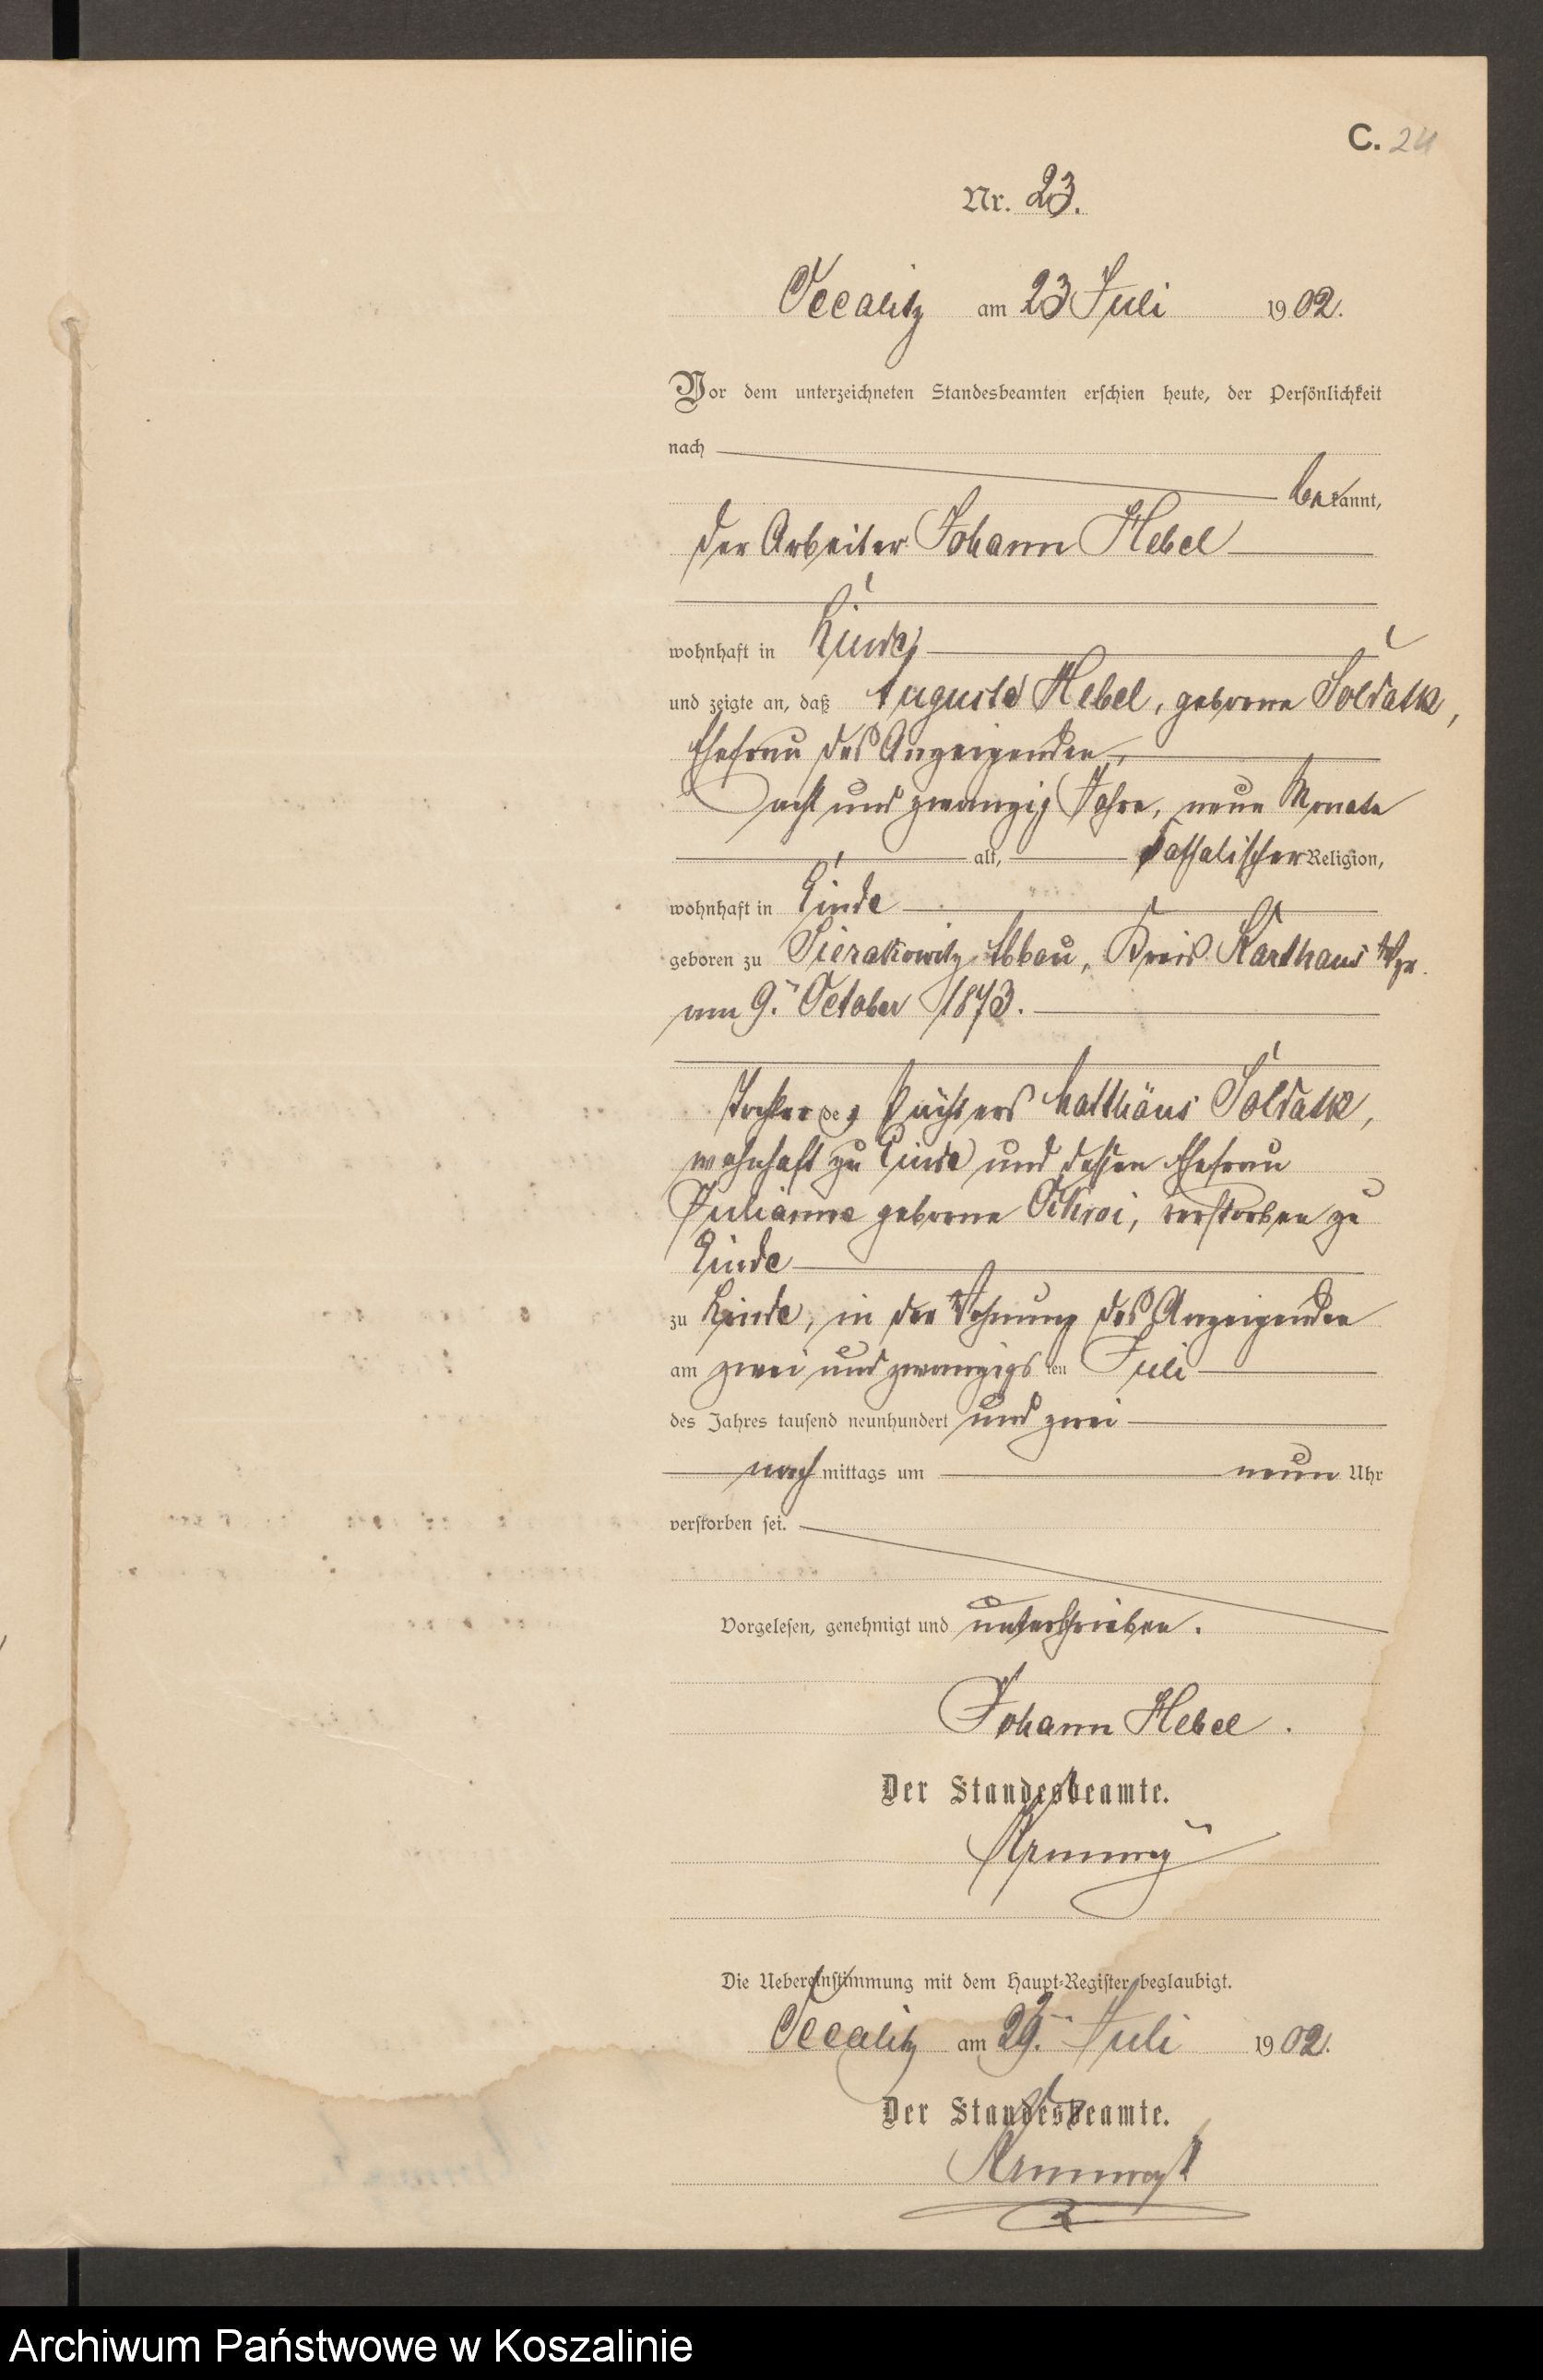 C. 24
Nr. 23.
Occalitz am 23 Juli 1902.
Vor dem unterzeichneten Standesbeamten erschien heute, der Persönlichkeit
nach
bekannt,
der Arbeiter Johann Hebel
wohnhaft in Linde,
und zeigte an, daß Auguste Hebel, geborene Soldatk,
Ehefrau des Anzeigenden,
acht und zwanzig Jahre, neun Monate
alt, katholischer Religion,
wohnhaft in Linde
geboren zu Sierakowitz Abbau, Kreis Karthaus Wpr.
am 9. October 1873.
Tochter des Pächters Matthäus Soldatk,
wohnhaft zu Linde und dessen Ehefrau
Julianna geborene verstorben zu
Linde
zu Linde, in der Wohnung des Anzeigenden
am zwei und zwanzigsten Juli
des Jahres tausend neunhundert und zwei
nachmittags um neun Uhr
verstorben sei.
Vorgelesen, genehmigt und unterschrieben.
Johann Hebel.
Der Standesbeamte.
Die Uebereinstimmung mit dem Haupt-Register beglaubigt.
Occalitz am 29. Juli 1902.
Der Standesbeamte.
Archiwum Państwowe w Koszalinie